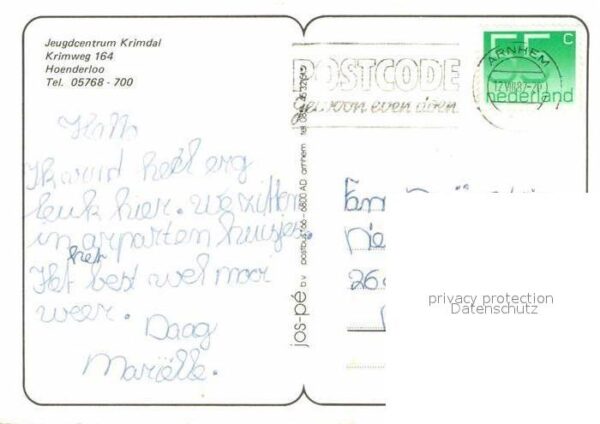 Jeugdcentrum Krimdal
Krimweg 164
Hoenderloo
Tel. 05768 - 700
Hallo
Ik vind heel erg
leuk hier. we zitten
in aparten huisjes.
het
Het best wel mooi
weer. Daag
Mariëlle.
jos-pé b.v. postbus 66 - 6800 AD arnhem tel.
POSTCODE
gewoon even doen
ARNHEM
55 c
nederland
Fam
26
privacy protection
Datenschutz